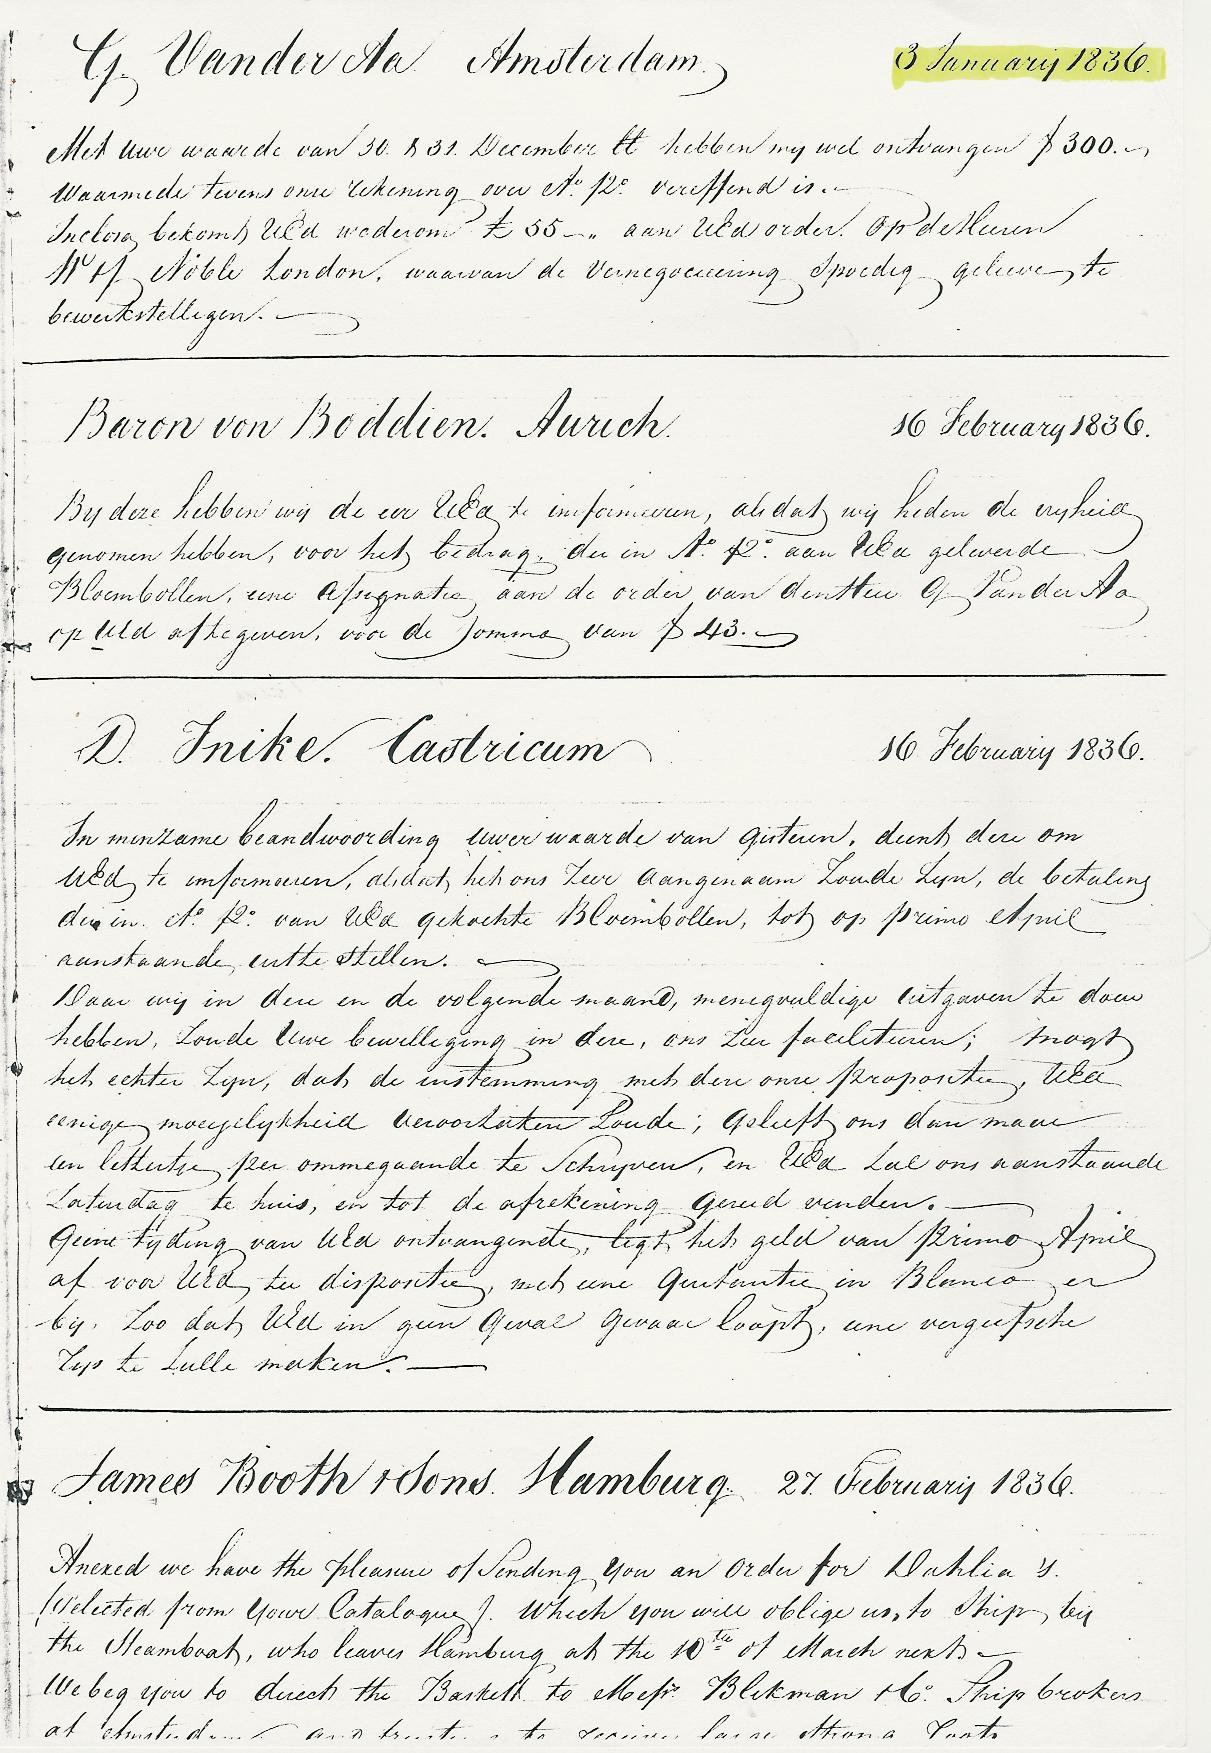 G. Vander Aa Amsterdam. 3 January 1836.
Met Uwe waarde van 30. & 31. December ll hebben wy wel ontvangen ƒ 300.-
Waarmede tevens onze rekening over Aº. Pº. vereffend is.-
Inclosa bekomt UEd wederom £ 55-„ aan UEd order. op de Heeren
Noble London, waarvan de Vernegocieering Spoedig gelieve te
bewerkstelligen.-
Baron von Boddien. Aurich. 16 February 1836.
By deze hebben wij de eer UEd te informeeren, als dat wij heden de vryheid
genomen hebben, voor het bedrag. der in Aº. Pº. aan UEd geleverde
Bloembollen, eene Assignatie, aan de order van den Heer G Vander Aa
op UEd aftegeven, voor de Somma van ƒ 43.-
D. Snike. Castricum 16 February 1836.
In minzame beandwoording uwer waarde van gisteren, dient deze om
UEd te informeeren, als dat het ons Zeer aangenaam Zoude Zyn, de betaling
der in. Aº. Pº. van UEd gekochte Bloembollen, tot op primo April
aanstaande, uitte stellen.-
Daar wij in deze en de volgende maand, menigvuldige uitgaven te doen
hebben, Zoude Uwe bewilliging in deze, ons Zeer faciliteeren; mogt
het echter Zyn, dat de instemming met deze onze Propositie, UEd
eenige moeijelykheid veroorzaken Zoude; Gelieft ons dan maar
een lettertje per ommegaande te Schryven, en UEd Zal ons aanstaande
Zaturdag te huis, en tot de afrekening gereed vinden.-
Geene tyding van UEd ontvangende, legt het geld van Primo April
af voor UEd ter dispositie, met eene Quitantie in Blanco er
by. Zoo dat UEd in geen Geval Gevaar loopt, eene vergeefsche
Zyn te Zulle maken.-
James Booth & Sons. Hamburg. 27. February 1836.
Anexed we have the pleasure of Sending You an Order for Dahlia's.
(Selected from Your Catalogue). Which you will oblige us, to Ship, by
the Steamboat, who leaves Hamburg at the 10th of March next-
We beg you to direct the Baskett to Messr. Blekman & Co. Ship brokers
at Amsterdam and to receive large strong roots